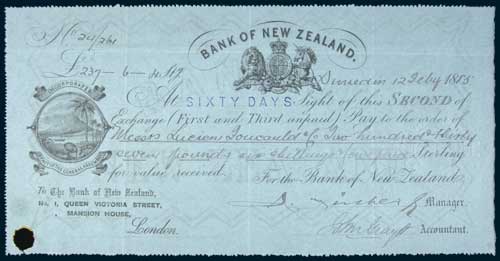 BANK OF NEW ZEALAND.
No 24/261
£237-6-4 Stg
Dunedin 12 Feby 1885
At SIXTY DAYS Sight of this SECOND of
Exchange (First and Third unpaid) Pay to the order of
Messrs Lucien & Co Two hundred & thirty
seven pounds six shillings & four pence Sterling
for value received.
For the Bank of New Zealand
To The Bank of New Zealand,
No. 1, QUEEN VICTORIA STREET,
MANSION HOUSE,
London.
Manager.
Accountant.
INCORPORATED